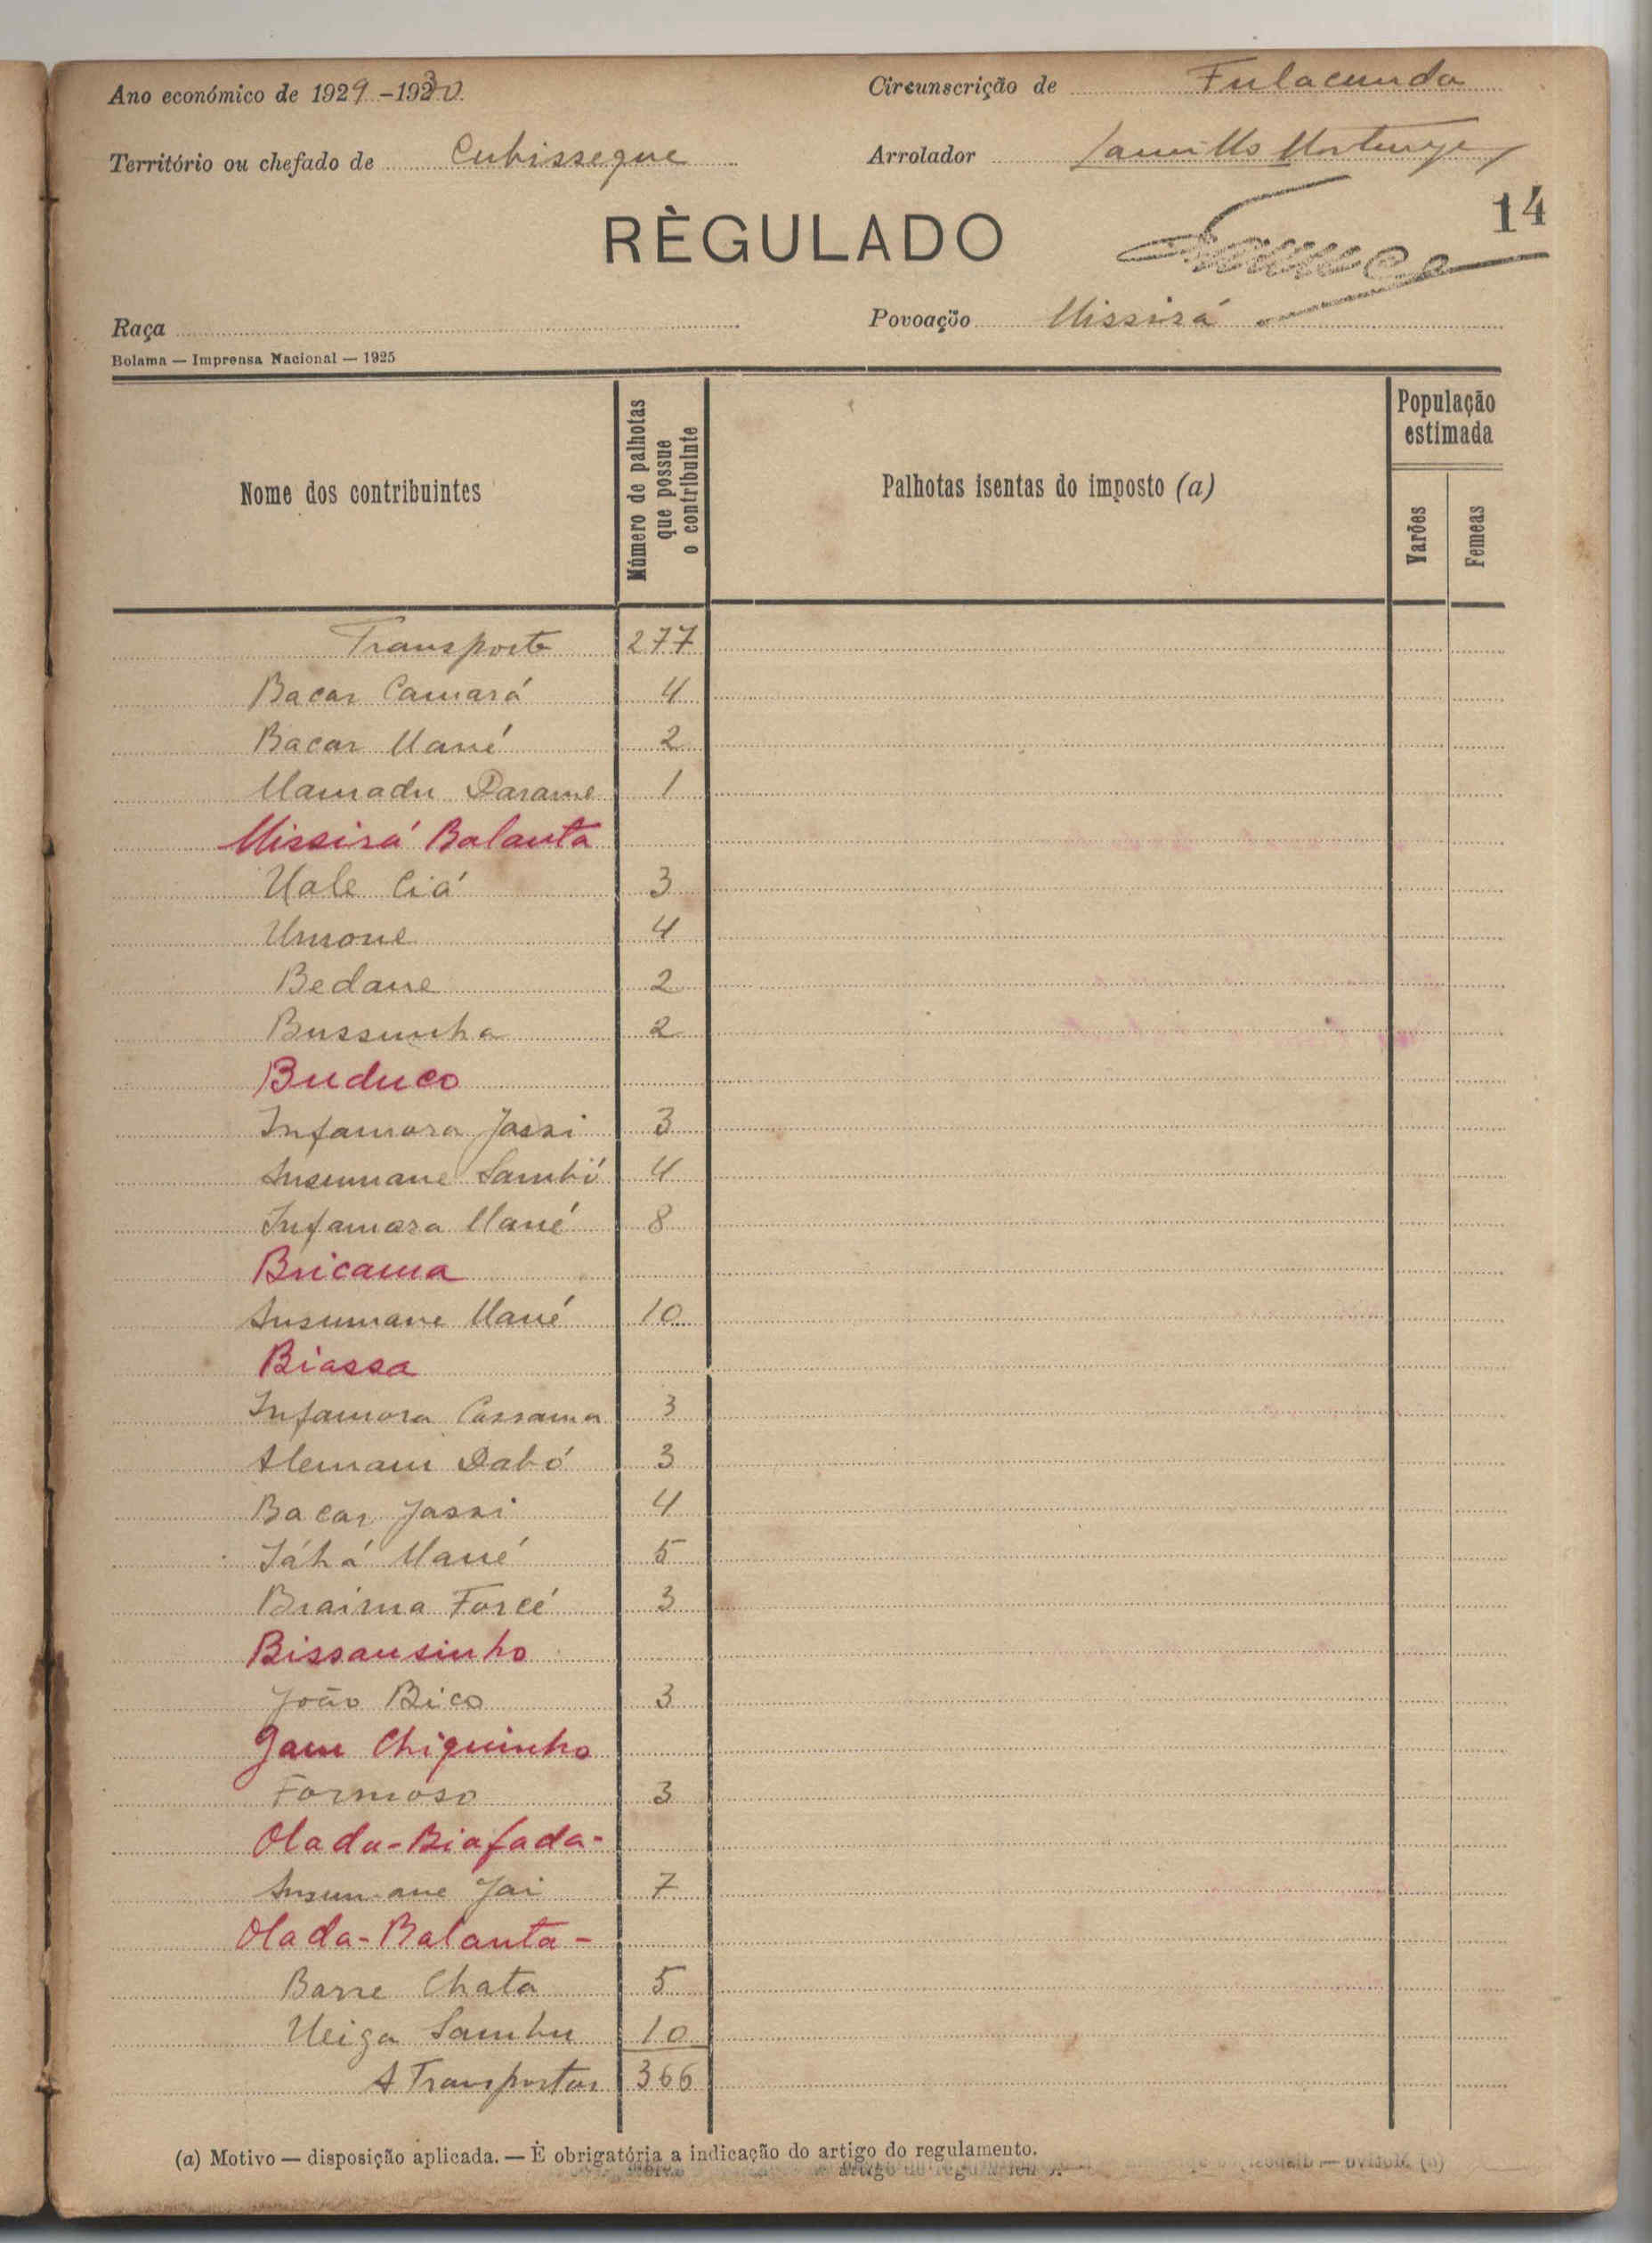 Ano económico de 1929-1930
Circunscrição de Fulacunda
Território ou chefado de Cubisseque
Arrolador
14
RÈGULADO
Raça
Povoaçõo Missirá
Bolama — Imprensa Nacional — 1925
Nome dos contribuintes
Número de palhotas que possue o contribuinte
Palhotas isentas do imposto (a)
População estimada
Varões
Femeas
Transporte 277
Bacar Camará 4
Bacar Mané 2
Mamadu Darame 1
Missirá Balanta
Uale Ciá 3
Umone 4
Bedane 2
Bussunha 2
Buduco
Infamara Jassi 3
Insumane Sambú 4
Infamara Mané 8
Bricama
Insumane Mané 10
Biassa
Infamara Cassama 3
Alemam Dabó 3
Bacar Jassi 4
Mané 5
Braima Forcé 3
Bissausinho
João Bico 3
Gam Chiquinho
Formoso 3
Olada-Biafada-
Insumane Jai 7
Olada-Balanta-
Barre Chata 5
Ueiga Sambu 10
A Transportar 366
(a) Motivo — disposição aplicada. — È obrigatória a indicação do artigo do regulamento.